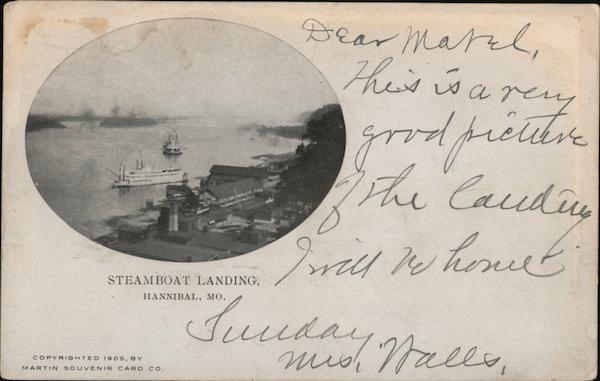 Dear Mabel,
This is a very
good picture
of the landing
I will be home
Sunday
Mrs. Walls,
STEAMBOAT LANDING,
HANNIBAL, MO.
COPYRIGHTED 1905, BY
MARTIN SOUVENIR CARD CO.